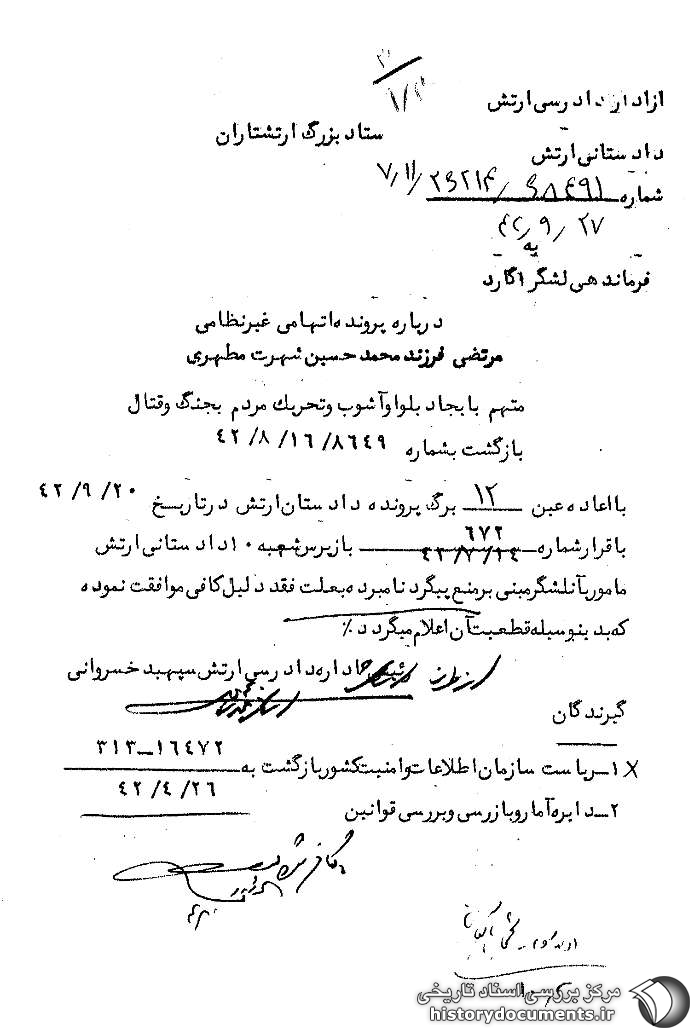 از اداره دادرسی ارتش
ستاد بزرگ ارتشتاران
دادستانی ارتش
شماره
۴۲٫۹٫۲۷
به
فرماندهی لشگر ۱ گارد
درباره پرونده اتهامی غیرنظامی
مرتضی فرزند محمد حسین شهرت مطهری
متهم بایجاد بلوا و آشوب و تحریك مردم بجنگ و قتال
بازگشت بشماره ۴۲/۸/۱۶/۸۶۴۹
با اعاده عین ۱۲ برگ پرونده دادستان ارتش در تاریخ ۴۲/۹/۲۰
با قرار شماره ۶۷۲ ۴۲/۷/۲۴ بازپرس شعبه ۱۰ دادستانی ارتش
مامور بآن لشگر مبنی بر منع پیگرد نامبرده بعلت فقد دلیل کافی موافقت نموده
که بدینوسیله قطعیت آن اعلام میگردد٪
از طرف رئیس اداره دادرسی ارتش سپهبد خسروانی
گیرندگان
۱ــ ریاست سازمان اطلاعات و امنیت کشور بازگشت به ۳۱۳-۱۶۴۷۲
۴۲/۴/۲۶
۲ــ دایره آمار و بازرسی و بررسی قوانین
مرکز بررسی اسناد تاریخی
historydocuments.ir